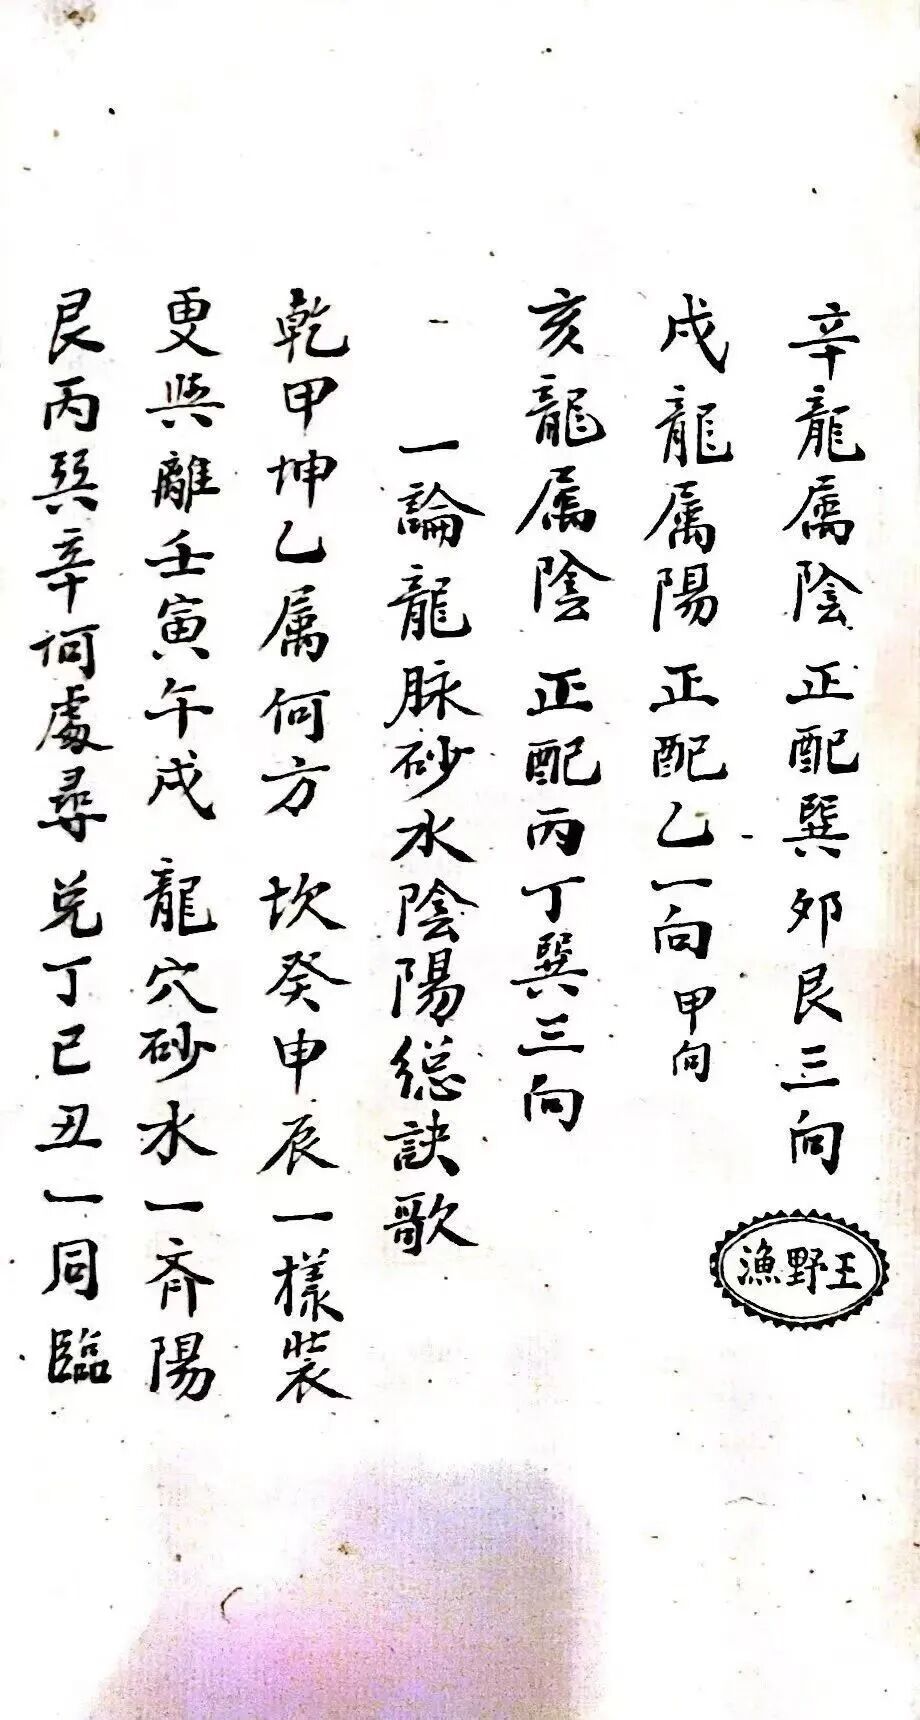 辛龍属陰 正配巽卯艮三向
戍龍属陽 正配乙一向 甲向
亥龍属陰 正配丙丁巽三向
一論龍脉砂水陰陽總訣歌
乾甲坤乙属何方 坎癸申辰一樣裝
更與離壬寅午戍 龍穴砂水一齊陽
艮丙巽辛何處尋 兌丁巳丑一同臨
漁野王